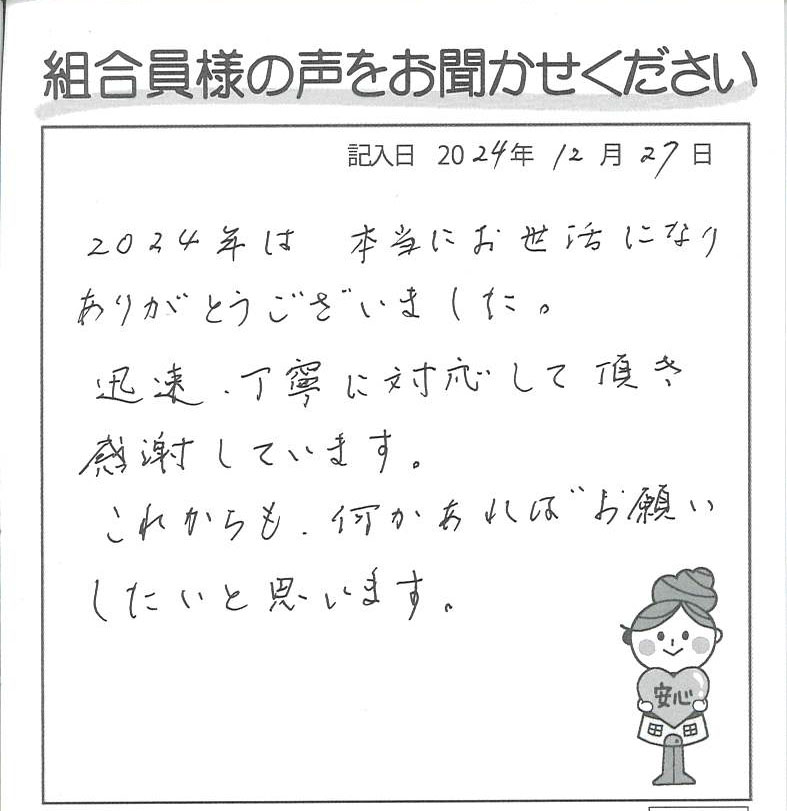 組合員様の声をお聞かせください
記入日 2024年 12月 27日
2024年は 本当にお世話になり
ありがとうございました。
迅速、丁寧に対応して頂き
感謝しています。
これからも、何かあればお願い
したいと思います。
安心